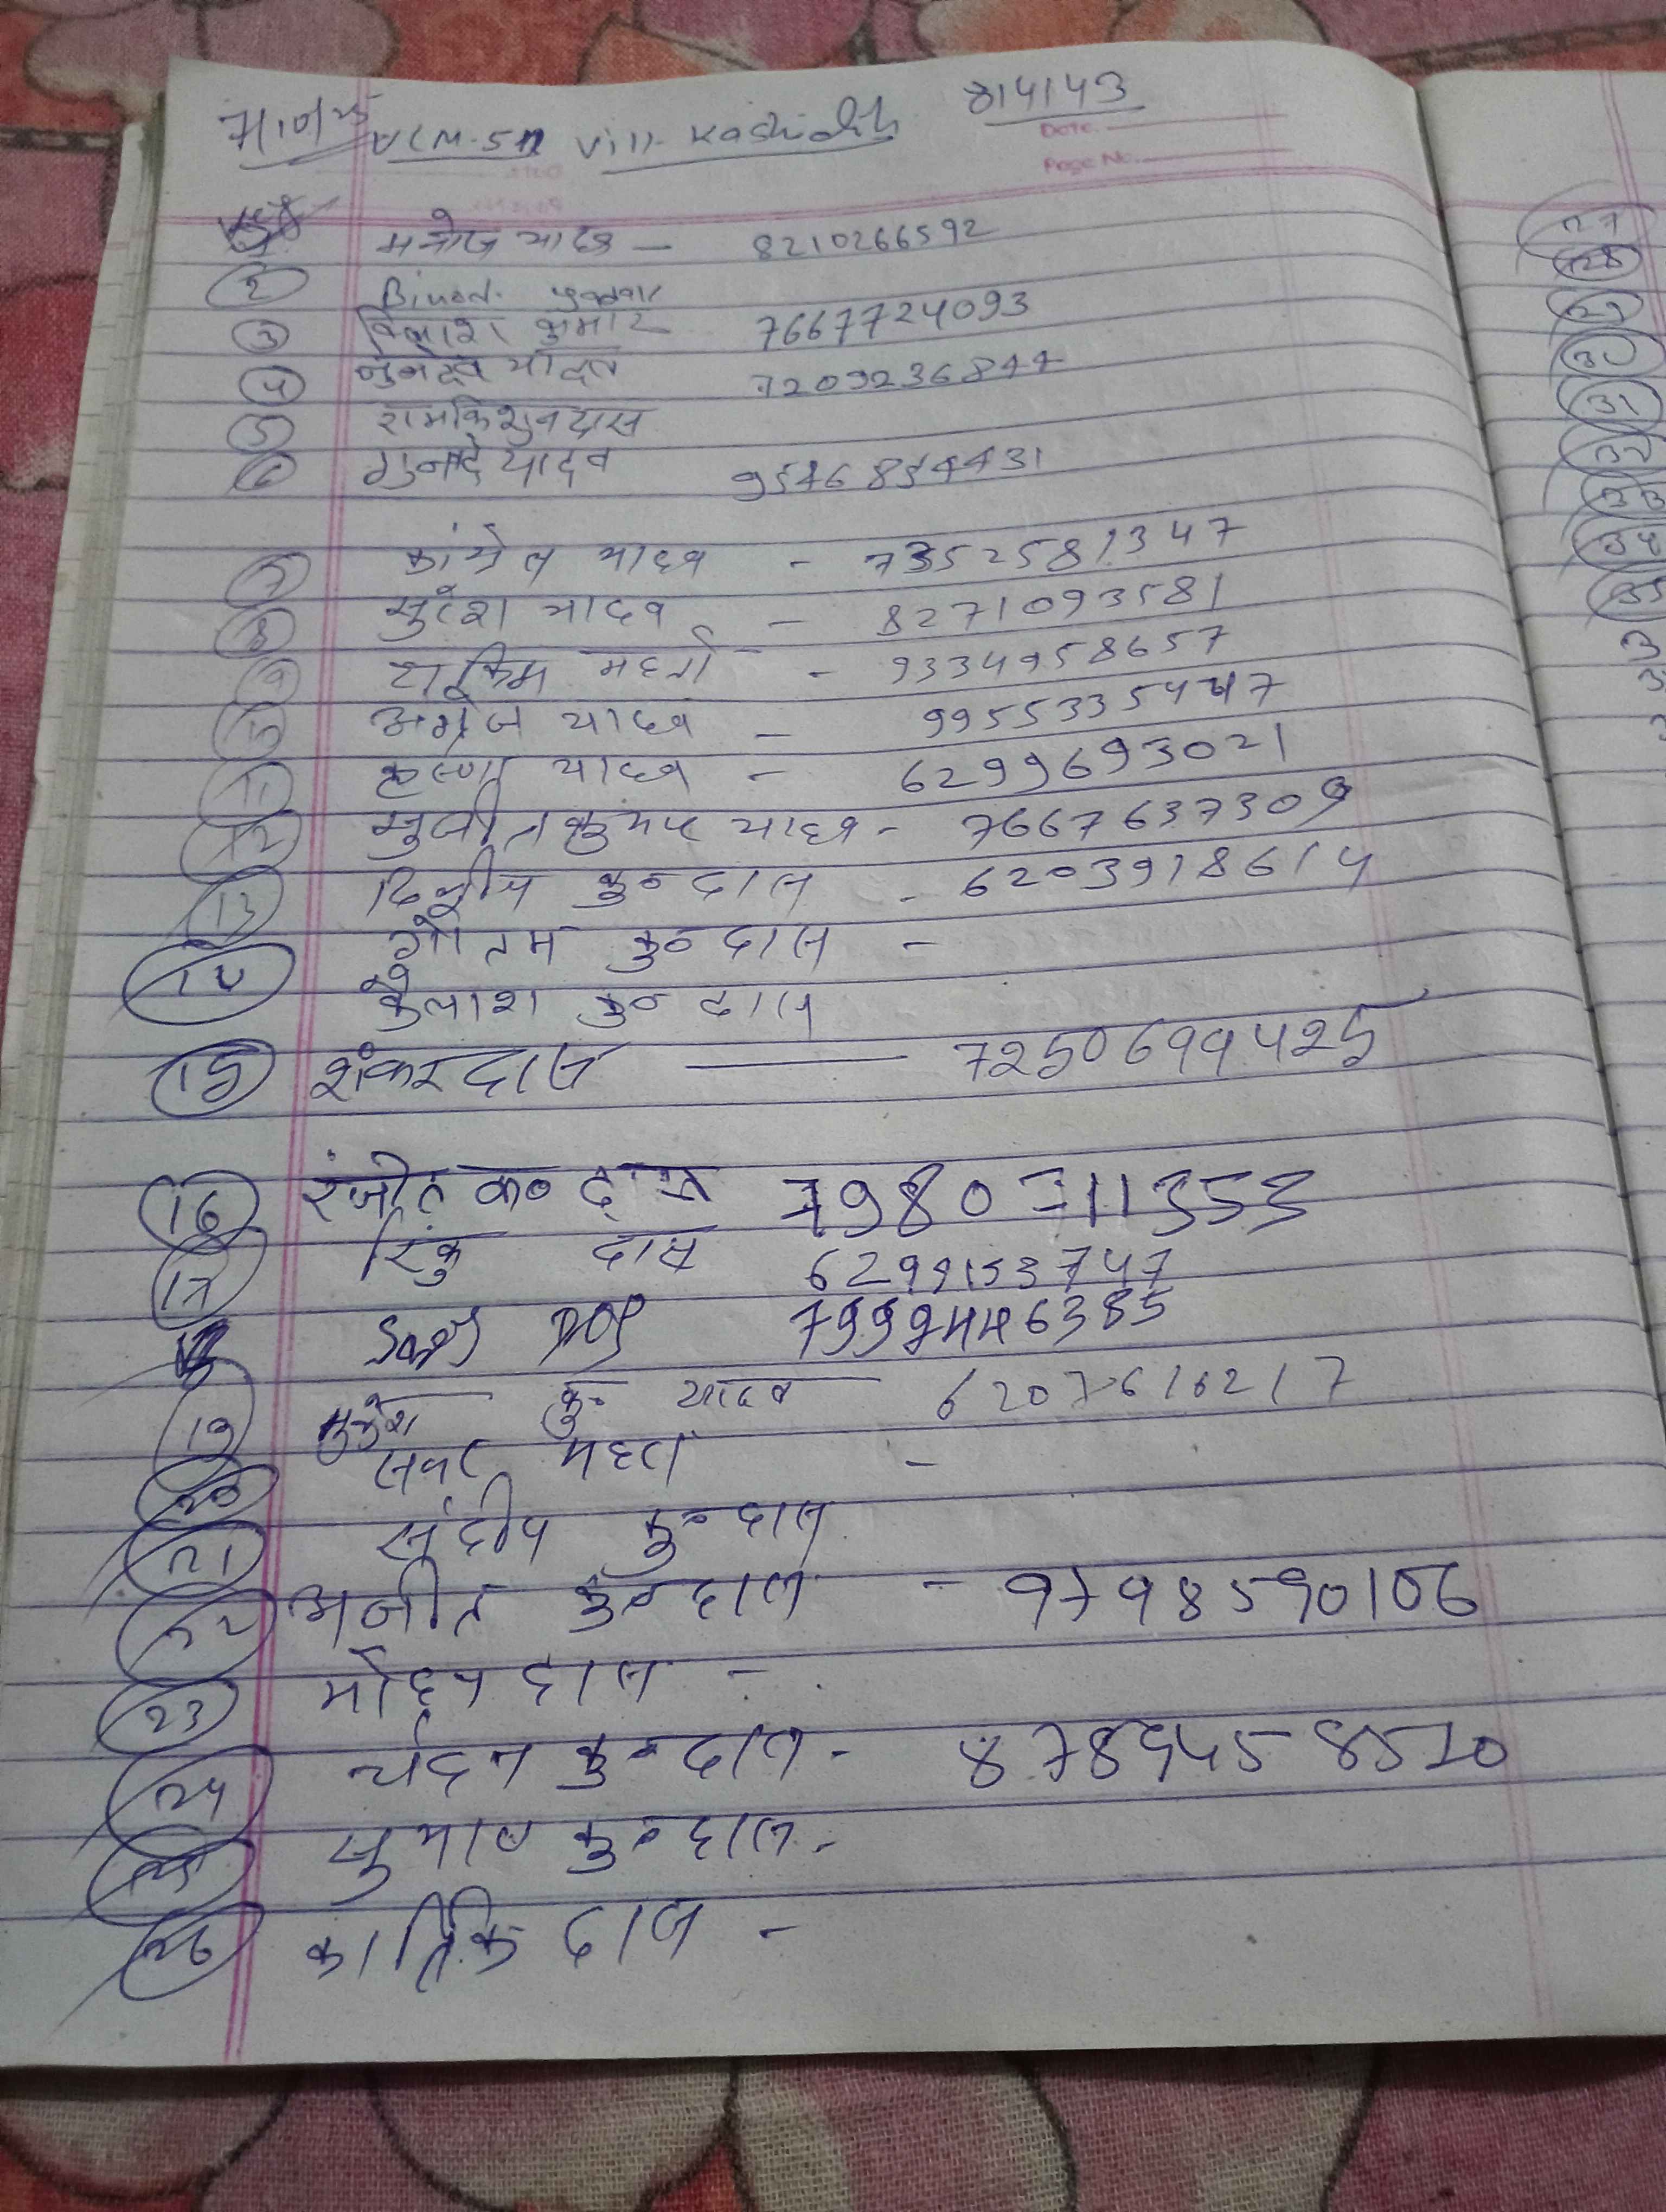 7/10/25 VLM-5 Vill- Kashidih 814143
Date.
Page No.
मनोज यादव - 8210266592
2 Binod
3 विकाश कुमार 7667724093
4 यादव 7209236844
5 रामकिशुन दास
6 यादव 9546854431
7 यादव - 7352581347
8 सुरेश यादव - 8271093581
9 महतो - 9334958657
10 यादव - 9955335447
11 कृष्णा यादव - 6299693021
12 सुजीत कुमार यादव - 7667637309
13 दिलीप कु० दास - 6203918614
गौतम कु० दास -
14 कैलाश कु० दास
15 शंकर दास — 7250699425
16 रंजीत क० दास 7980711353
17 रिंकु दास 6299153747
7999446385
19 मुकेश कु० यादव 6207616217
20 महतो -
21 संदीप कु० दास
22 अजीत कु० दास - 9798590106
23 मोहन दास -
24 चंदन कु० दास - 8789458510
25 कु० दास -
26 कार्तिक दास -
27
28
29
30
31
32
33
34
35